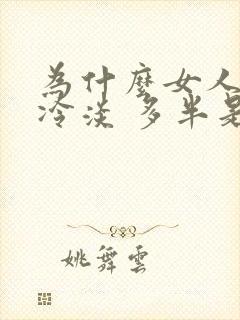 為什麼女人
冷淡 多半是
姚舞雲